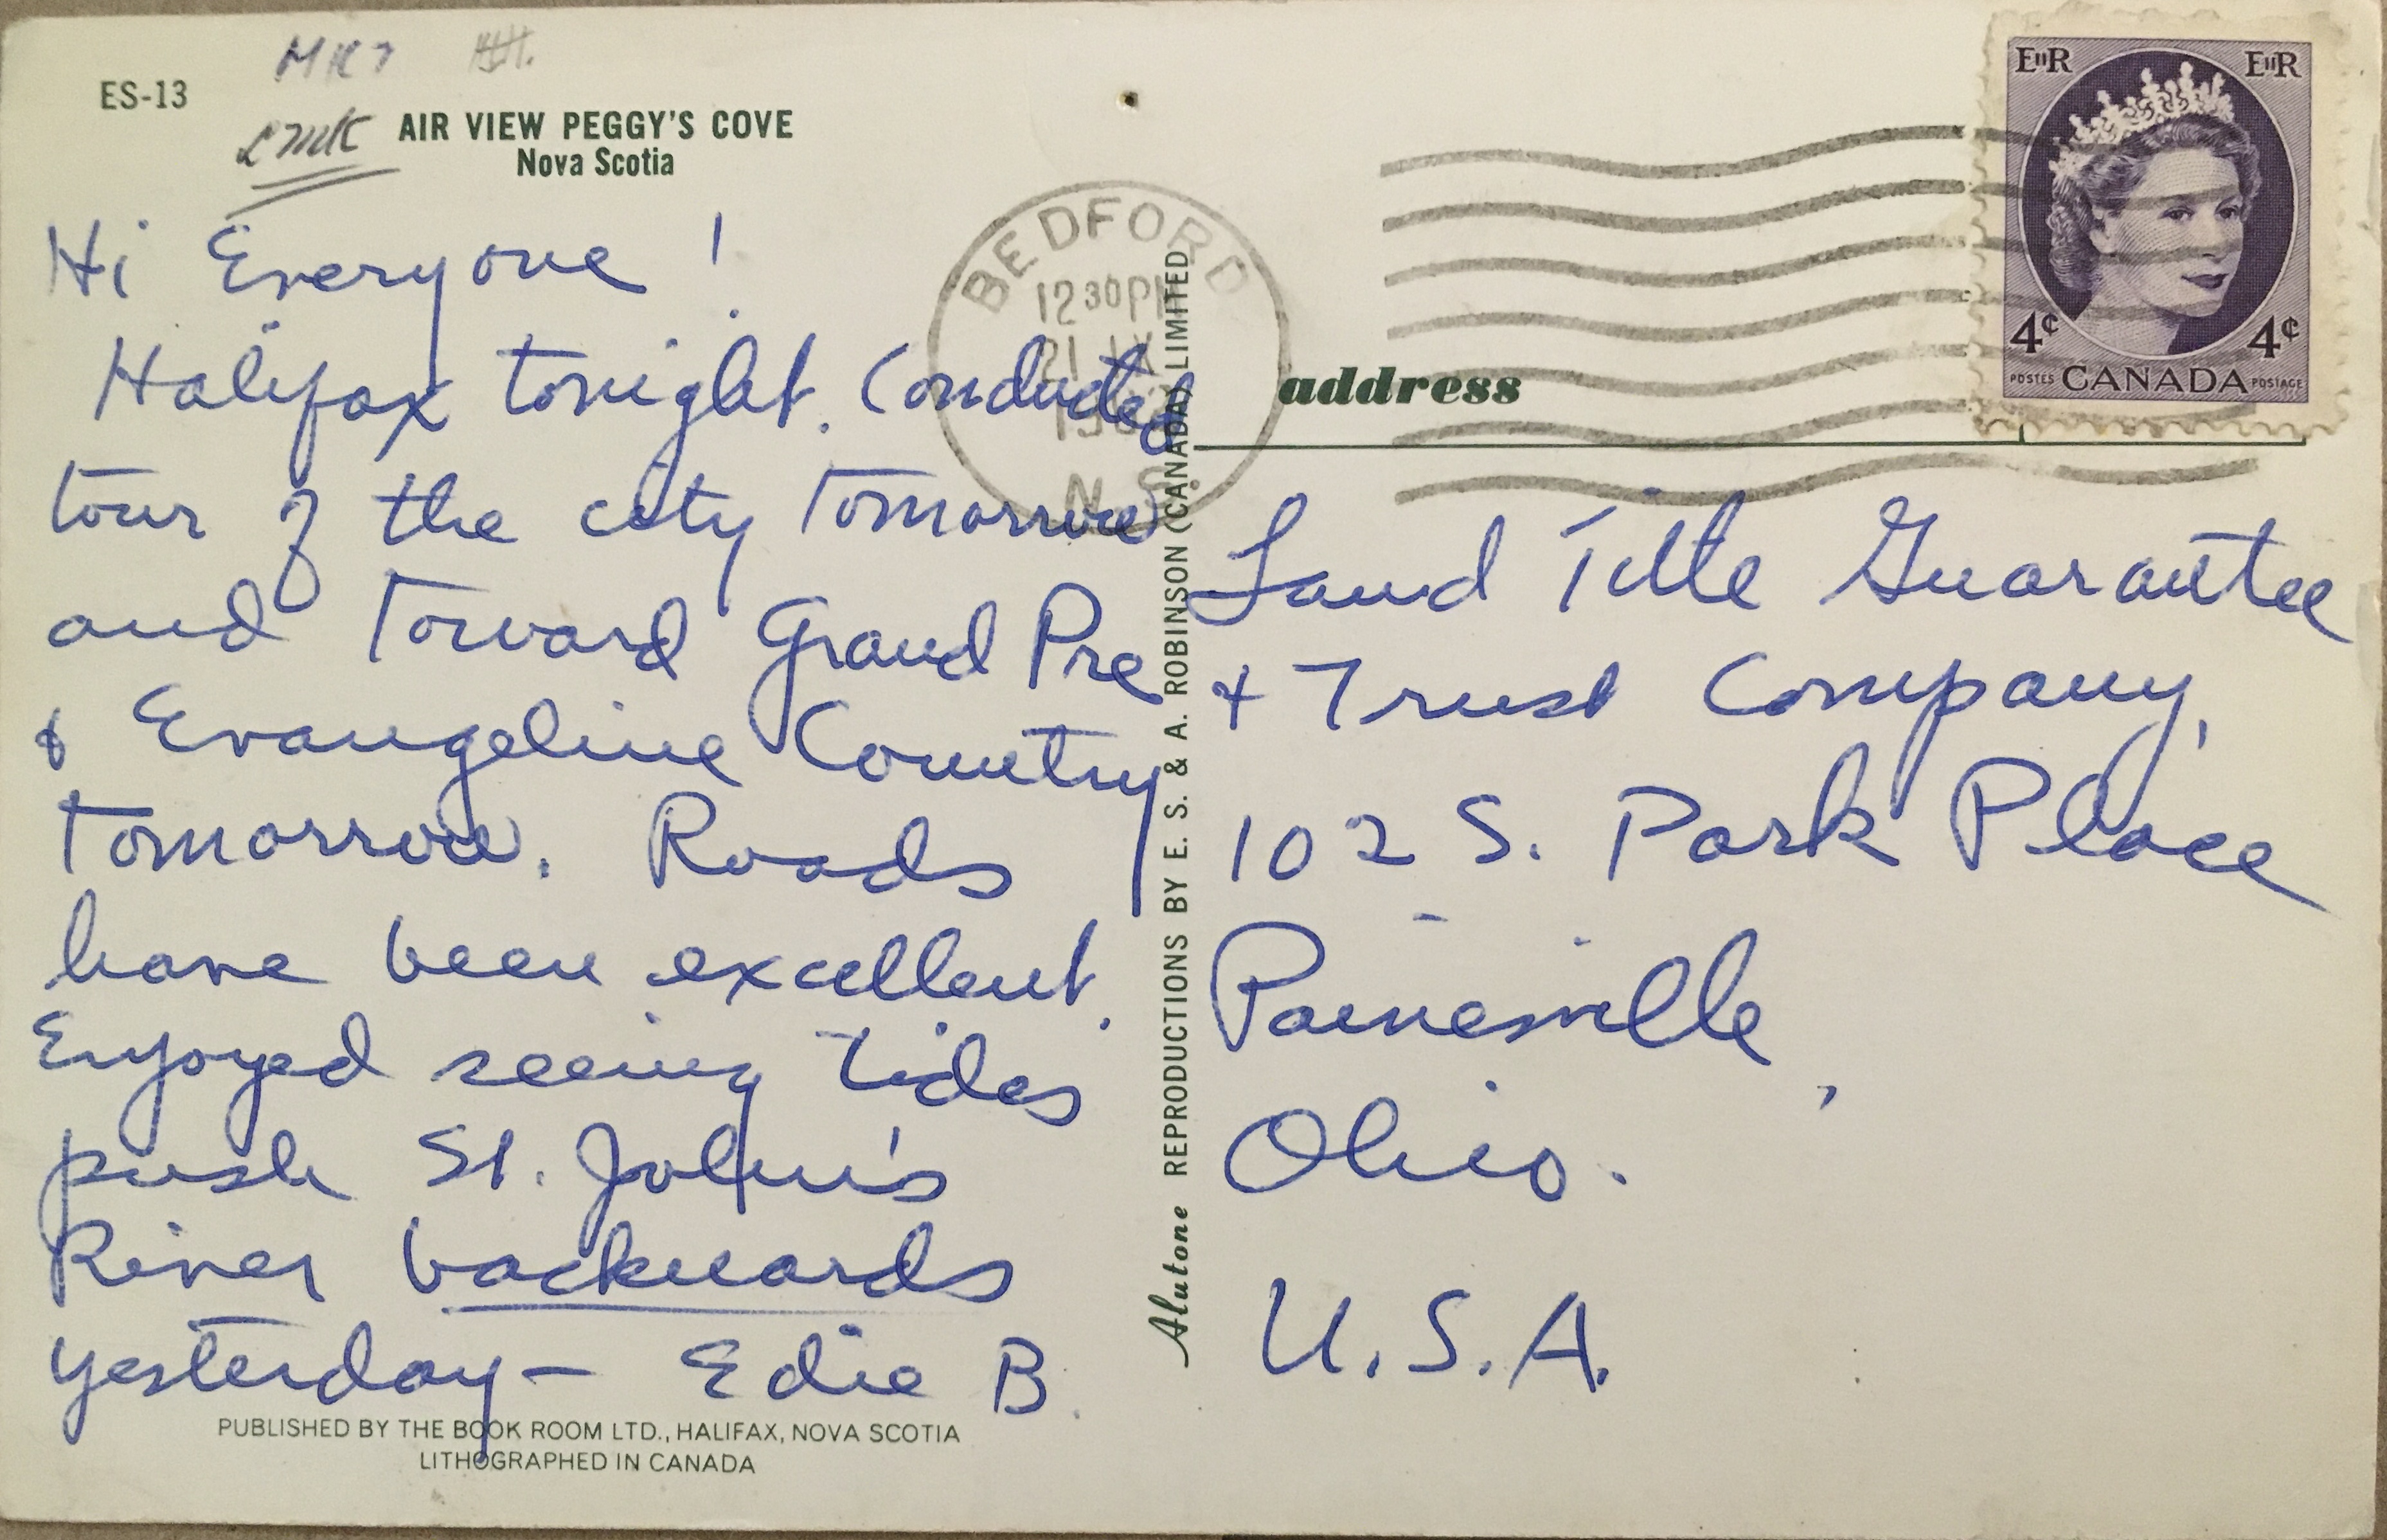 ES-13
AIR VIEW PEGGY'S COVE
Nova Scotia
Hi Everyone!
Halifax tonight. Conducted
tour of the city tomorrow
and toward Grand Pre
& Evangeline Country
tomorrow. Roads
have been excellent.
Enjoyed seeing tides
push St. John's
River backwards
yesterday— Edie B.
PUBLISHED BY THE BOOK ROOM LTD., HALIFAX, NOVA SCOTIA
LITHOGRAPHED IN CANADA
Alutone REPRODUCTIONS BY E. S. & A. ROBINSON (CANADA) LIMITED
BEDFORD
12 30 PM
21 IX
N.S.
EIIR EIIR
4¢ 4¢
POSTES CANADA POSTAGE
address
Land Title Guarantee
& Trust Company,
102 S. Park Place
Painesville,
Ohio.
U.S.A.